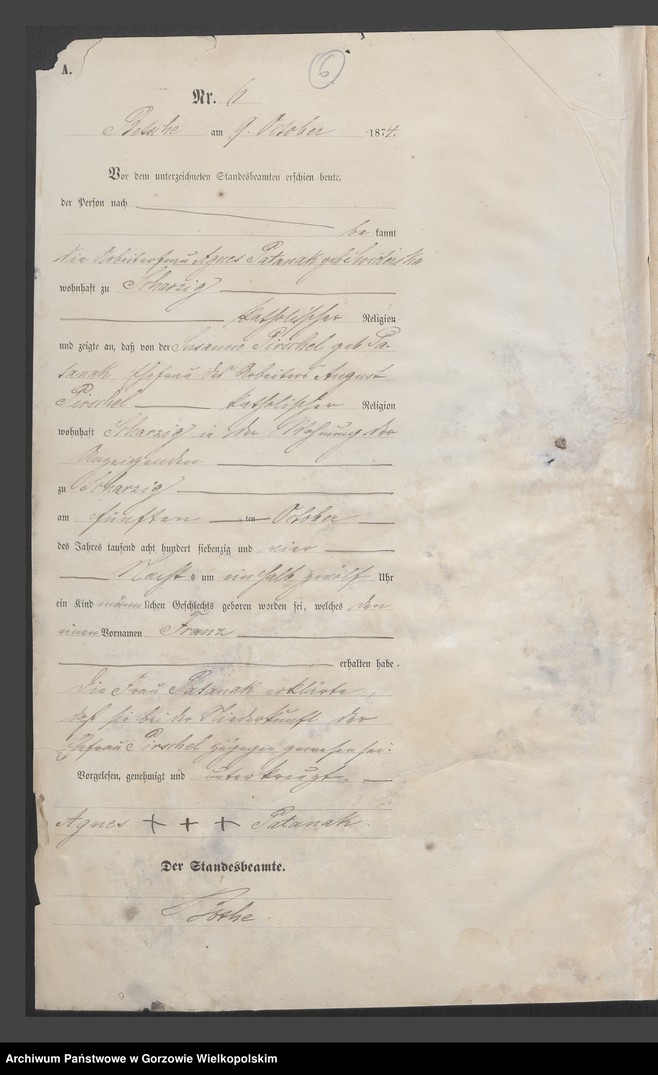 A.
6
Nr. 6
Betsche am 9. October 1874.
Vor dem unterzeichneten Standesbeamten erschien heute,
der Person nach
be kannt
die Arbeiterfrau Agnes Patanak geb
wohnhaft zu Scharzig
katholischer Religion
und zeigte an, daß von der Susanna Pirschel geb Pa-
tanak Ehefrau des Arbeiters August
Pirschel katholischer Religion
wohnhaft Scharzig in der Wohnung der
Anzeigenden
zu Scharzig
am fünften ten October
des Jahres tausend acht hundert siebenzig und vier
Nachts um ein halb zwölf Uhr
ein Kind männlichen Geschlechts geboren worden sei, welches den
einen Vornamen Franz
erhalten habe.
Die Frau Patanak erklärte,
daß sie bei der Niederkunft der
Ehefrau Pirschel zugegen gewesen sei:
Vorgelesen, genehmigt und unterkreuzt.
Agnes + + + Patanak.
Der Standesbeamte.
Archiwum Państwowe w Gorzowie Wielkopolskim